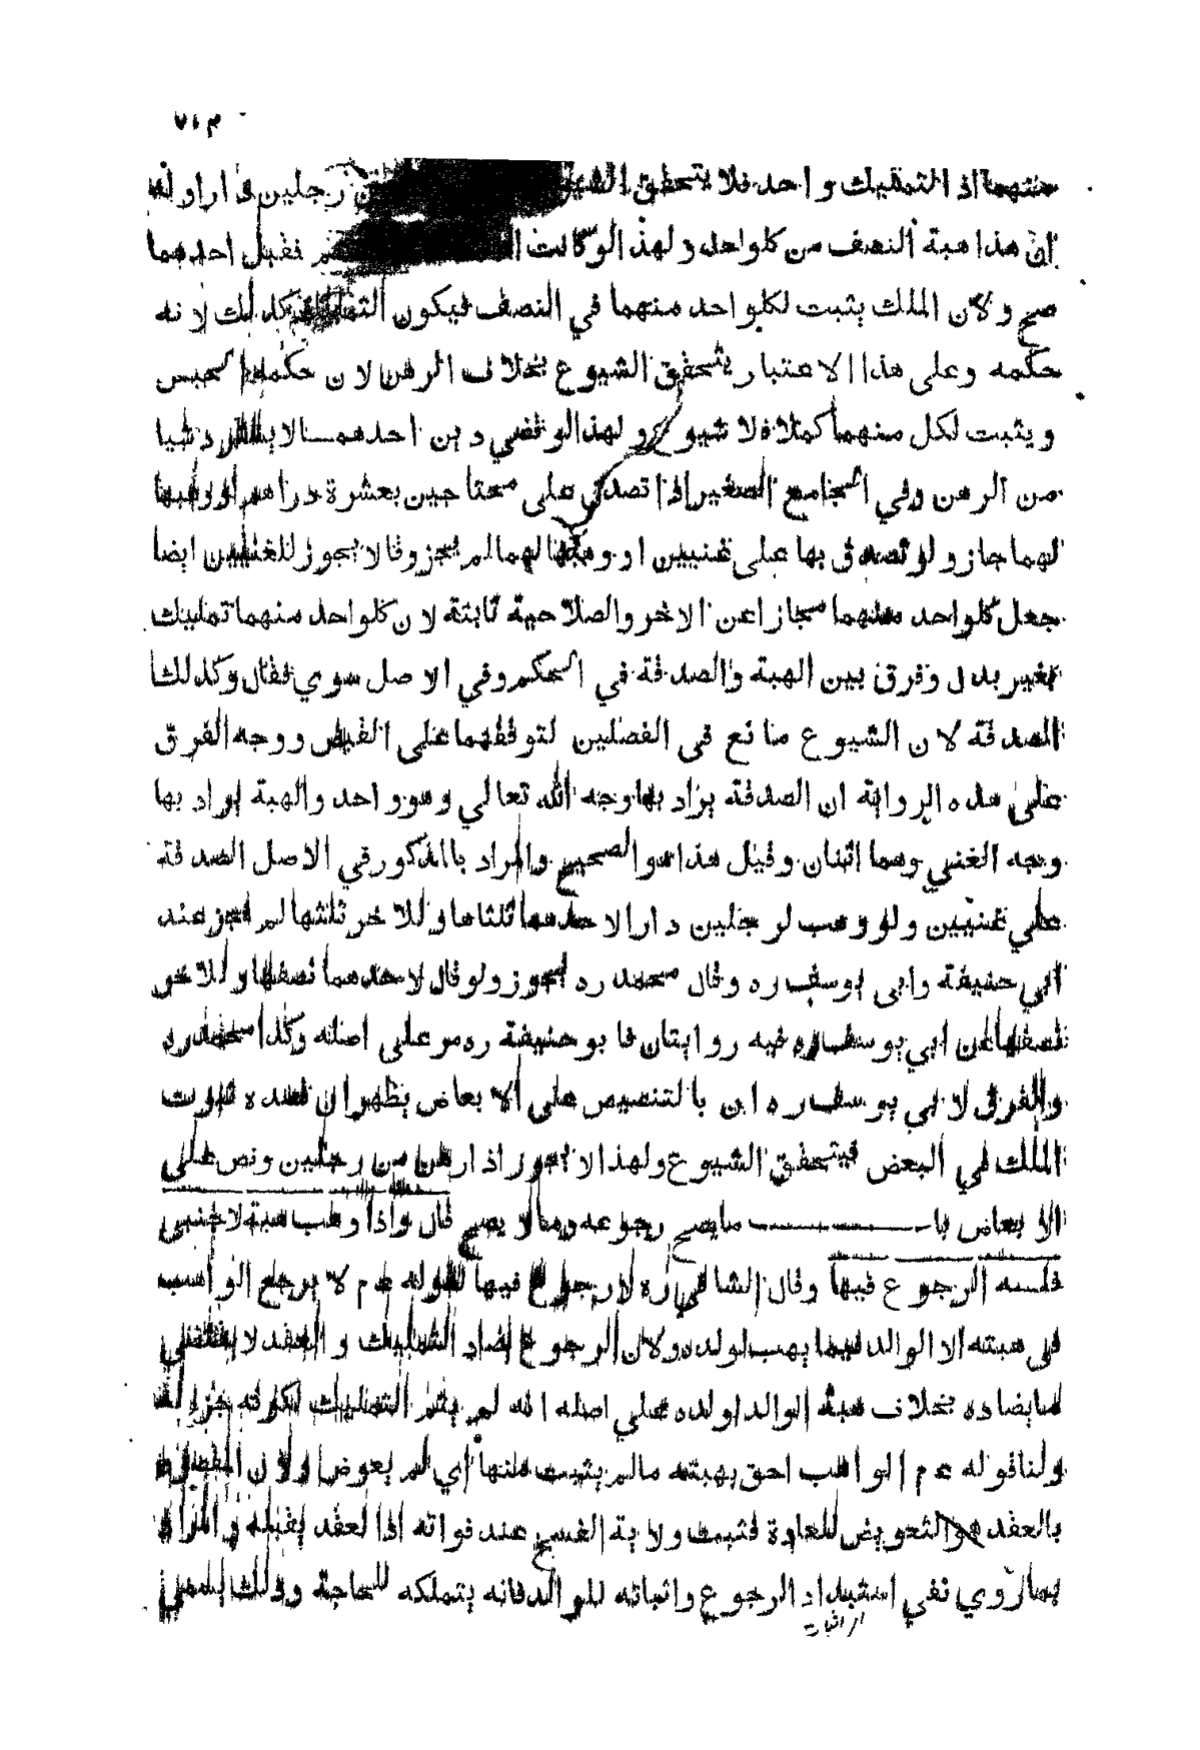 منهما اذ التمليك واحد فلا يتحقق الشيوع رجلين دارا وله
ان هذا هبة النصف من كل واحد ولهذا لو كانت فقبل احدهما
صح ولان الملك يثبت لكل واحد منهما في النصف فيكون التمليك كذلك لانه
حكمه وعلى هذا الاعتبار يتحقق الشيوع بخلاف الرهن لان حكمه الحبس
ويثبت لكل منهما كملا فلا شيوع ولهذا لو قضي دين احدهما لا يسترد شيا
من الرهن وفي الجامع الصغير اذا تصدق على محتاجين بعشرة دراهم او وهبها
لهما جاز ولو تصدق بها على غنيين او وهبها لهما لم يجز وقالا يجوز للغنيين ايضا
جعل كل واحد منهما مجازا عن الاخر والصلاحية ثابتة لان كل واحد منهما تمليك
بغير بدل وفرق بين الهبة والصدقة في الحكم وفي الاصل سوي فقال وكذلك
الصدقة لان الشيوع مانع في الفصلين لتوقفهما على القبض ووجه الفرق
على هذه الرواية ان الصدقة يراد بها وجه الله تعالي وهو واحد والهبة يراد بها
وجه الغني وهما اثنان وقيل هذا هو الصحيح والمراد بالمذكور في الاصل الصدقة
علي غنيين ولو وهب لرجلين دارا لاحدهما ثلثاها وللاخر ثلثها لم يجز عند
ابي حنيفة وابي يوسف ره وقال محمد ره يجوز ولو قال لاحدهما نصفها وللاخر
نصفها عن ابي يوسف ره فيه روايتان فابو حنيفة ره مر على اصله وكذا محمد ره
والفرق لابي يوسف ره ان بالتنصيص على الابعاض يظهر ان قصده ثبوت
الملك في البعض فيتحقق الشيوع ولهذا لا يجوز اذا رهن من رجلين ونص علي
الابعاض با ـــــــ ما يصح رجوعه وما لا يصح قال واذا وهب هبة لاجنبي
فلسه الرجوع فيها وقال الشافعي ره لا رجوع فيها لقوله عم لا يرجع الواهب
في هبته الا الوالد فيما يهب لولده ولان الرجوع يضاد التمليك والعقد لا يقتضي
ما يضاده بخلاف هبة الوالد لولده علي اصله انه لم يتم التمليك لكونه جزء له
ولنا قوله عم الواهب احق بهبته ما لم يثبت منها اي لم يعوض ولان المقصود
بالعقد هو التعويض للعادة فثبت ولاية الفسخ عند فواته اذ العقد يقبله والمراد
بما روي نفي استبداد الرجوع واثباته للوالد فانه يتملكه للحاجة وذلك يسمي